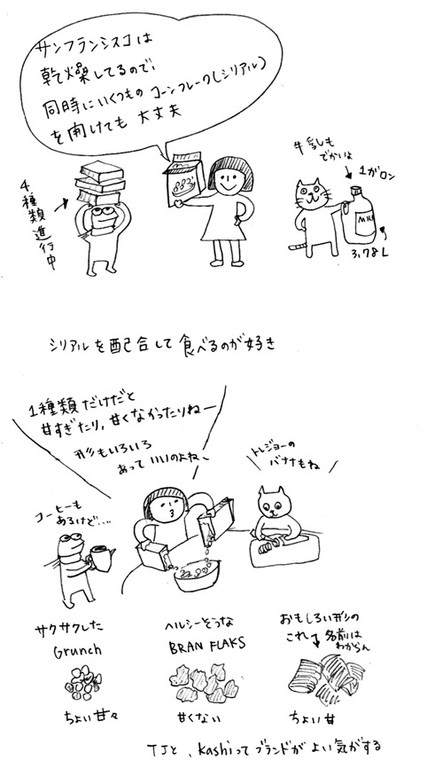 サンフランシスコは
乾燥してるので、
同時にいくつものコーンフレーク(シリアル)
を開けても大丈夫
4種類進行中
牛乳も
でかいよ
1ガロン
MILK
3.78L
シリアルを配合して食べるのが好き
1種類だけだと
甘すぎたり、甘くなかったりねー
形もいろいろ
あっていいのよね〜
コーヒーも
あるけど…
トレジョーの
バナナもね
サクサクした
Grunch
ちょい甘々
ヘルシーそうな
BRAN FLAKS
甘くない
おもしろい形の
これ→名前は
わからん
ちょい甘
TJと、Kashiってブランドがよい気がする